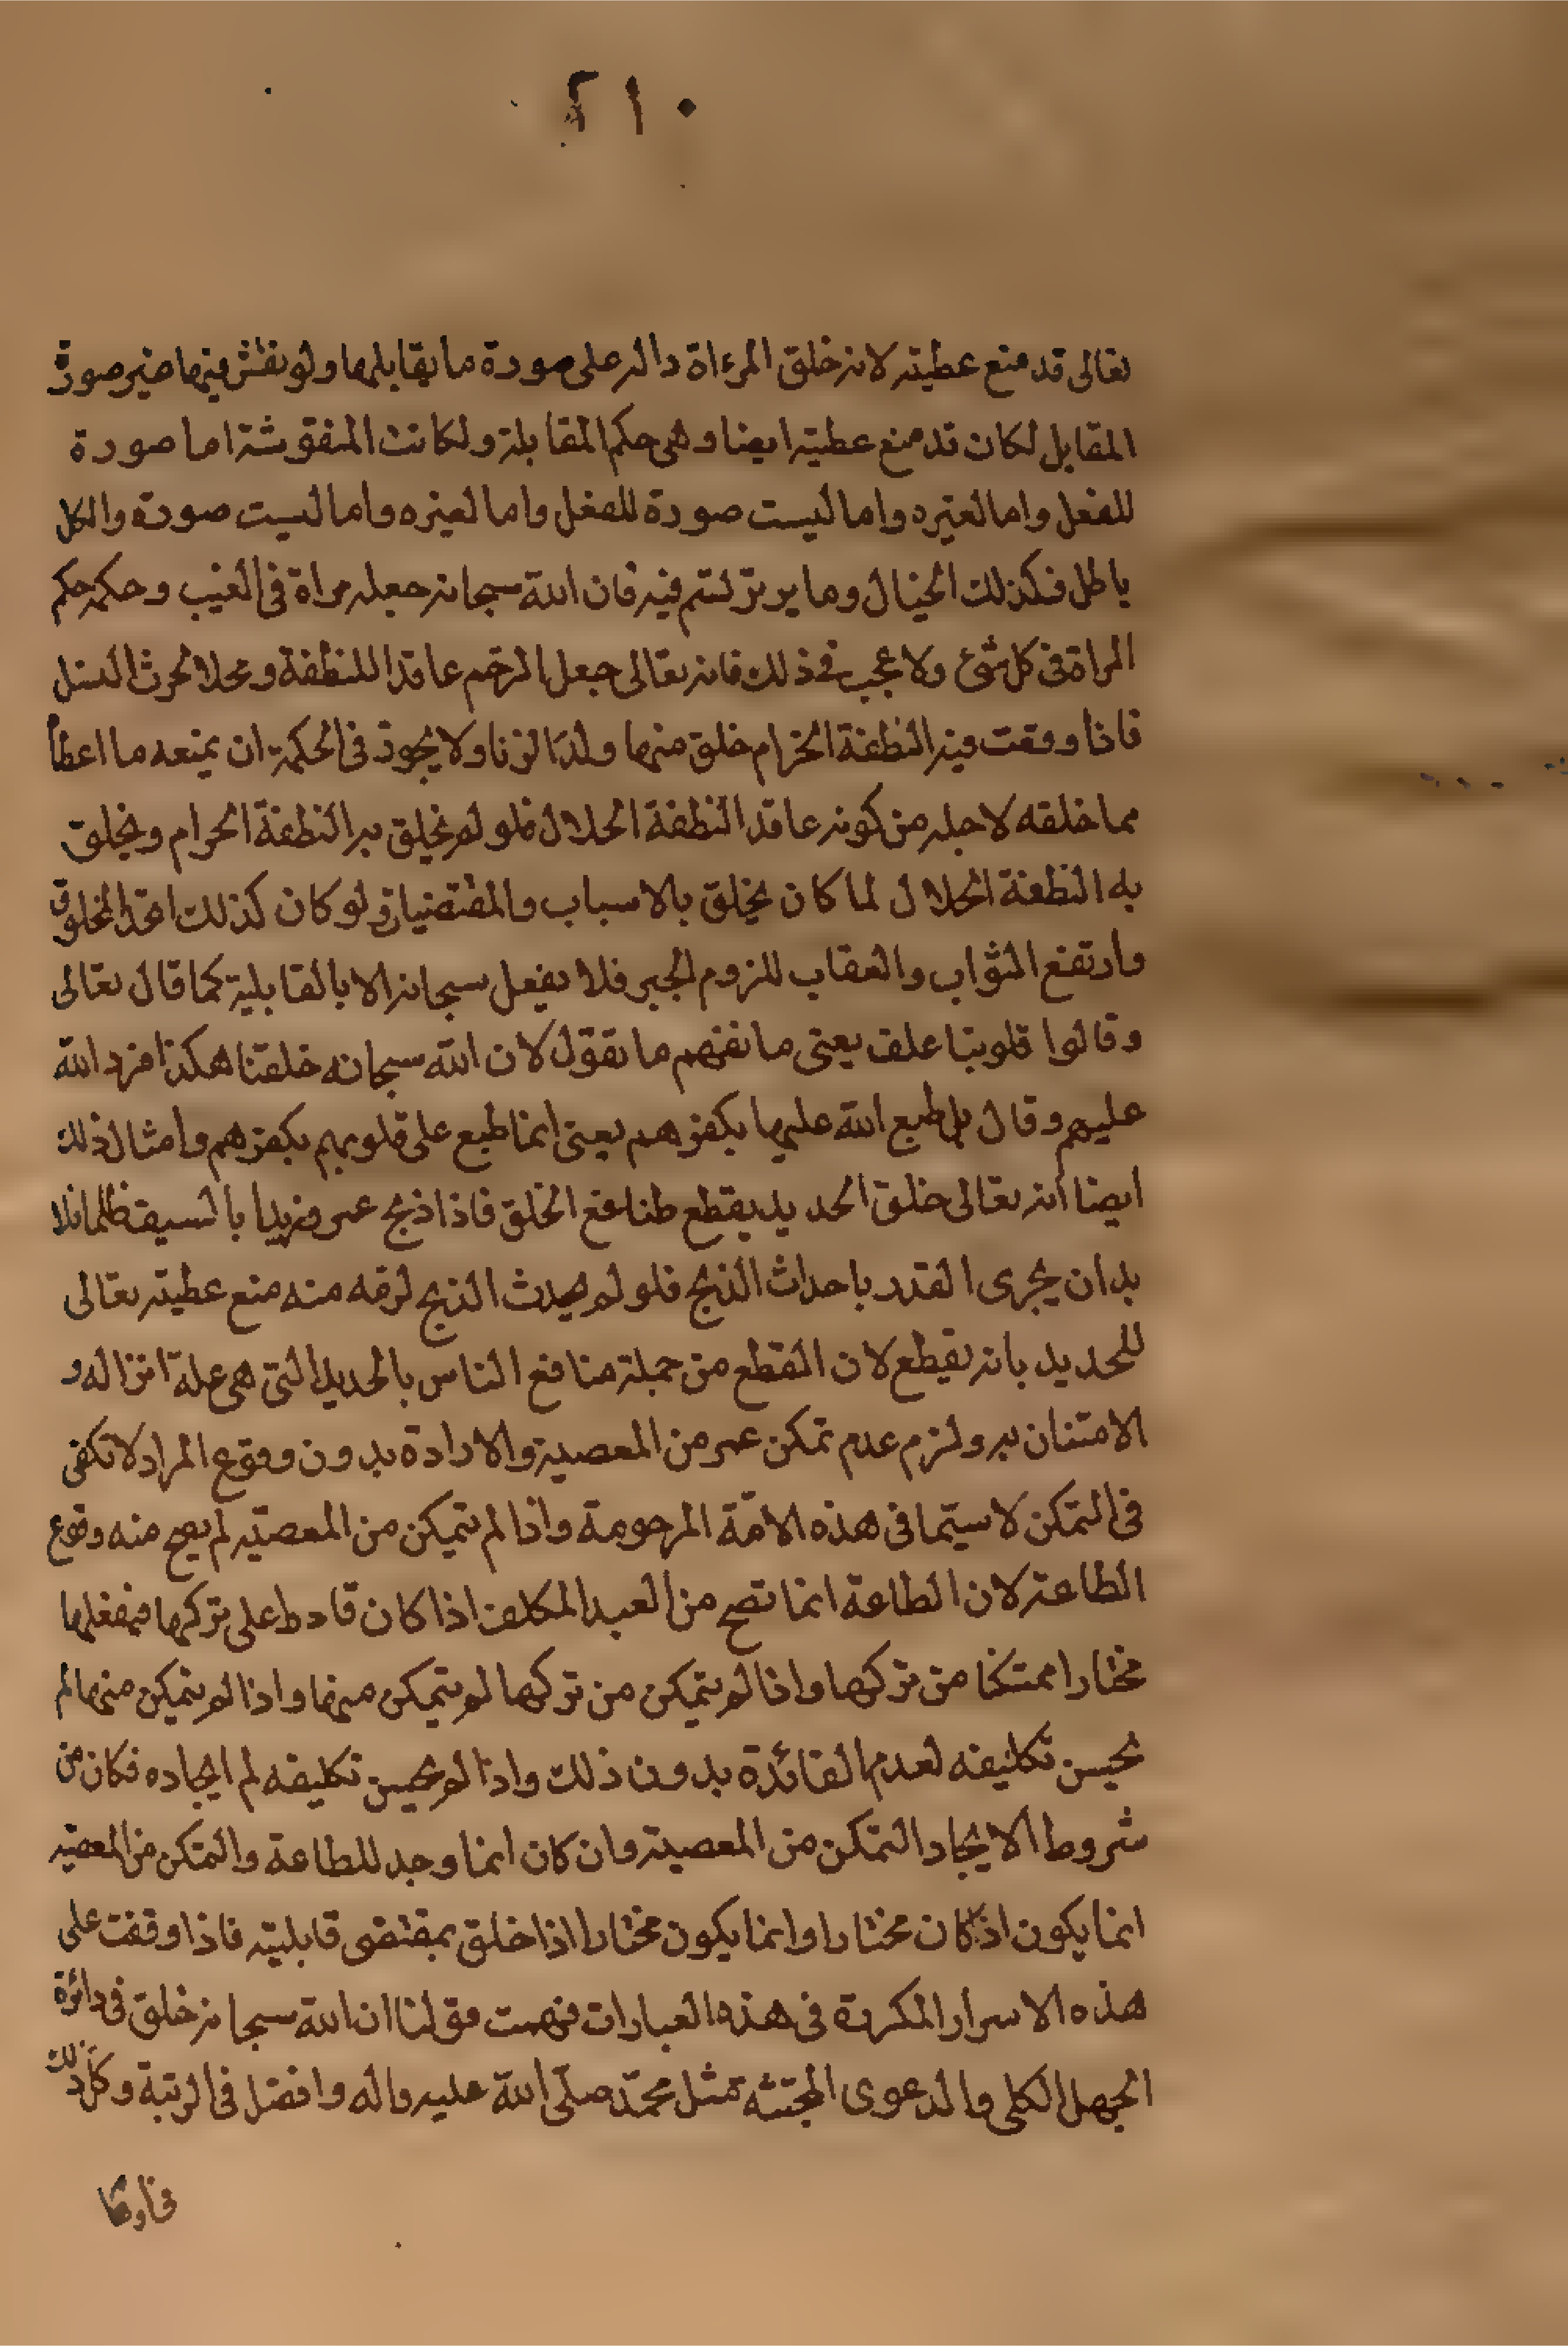 ٢١٠
تعالى قد منع عطيته لانه خلق المرءاة دالة على صورة ما يقابلها ولو نقش فيها غير صورة
المقابل لكان قد منع عطيته ايضا وهى حكم المقابلة ولكانت المنقوشة اما صورة
للفعل واما لغيره واما ليست صورة للفعل واما لغيره واما ليست صورة والكل
باطل فكذلك الخيال وما يرتسم فيه فان الله سبحانه جعله مراة فى الغيب وحكمه حكم
المراة فى كل شئ ولا عجب فى ذلك فانه تعالى جعل الرحم عاقدا للنطفة ومحلا لحرث النسل
فاذا وقعت فيه النطفة الحرام خلق منها ولد الزنا ولا يجوز فى الحكمة ان يمنعه ما اعطا
مما خلقه لاجله من كونه عاقد النطفة الحلال فلو لم يخلق به النطفة الحرام ويخلق
به النطفة الحلال لما كان يخلق بالاسباب والمقتضيات ولو كان كذلك اتحد المخلوق
وارتفع الثواب والعقاب للزوم الجبر فلا يفعل سبحانه الا بالقابلية كما قال تعالى
وقالوا قلوبنا غلف يعنى ما نفهم ما تقول لان الله سبحانه خلقنا هكذا فرد الله
عليهم وقال بل طبع الله عليها بكفرهم يعنى انما طبع على قلوبهم بكفرهم وامثال ذلك
ايضا انه تعالى خلق الحديد يقطع لمنافع الخلق فاذا ذبح عمرو زيدا بالسيف ظلما فلا
بد ان يجرى القدر باحداث الذبح فلو لم يحدث الذبح لزمه منه منع عطيته تعالى
للحديد بانه يقطع لان القطع من جملة منافع الناس بالحديد التى هى علة انزاله و
الامتنان به ولزم عدم تمكن عمرو من المعصية والارادة بدون وقوع المراد لا تكفى
فى التمكن لا سيما فى هذه الامة المرحومة واذا لم يتمكن من المعصية لم يصح منه وقوع
الطاعة لان الطاعة انما تصح من العبد المكلف اذا كان قادرا على تركها فيفعلها
مختارا متمكنا من تركها واذا لم يتمكن من تركها لم يتمكن منها واذا لم يتمكن منها لم
يحسن تكليفه لعدم الفائدة بدون ذلك واذا لم يحسن تكليفه لم ايجاده فكان من
شروط الايجاد التمكن من المعصية وان كان انما وجد للطاعة والتمكن من المعصية
انما يكون اذا كان مختارا وانما يكون مختارا اذا خلق بمقتضى قابليته فاذا وقفت على
هذه الاسرار المكررة فى هذه العبارات فهمت قولنا ان الله سبحانه خلق فى دائرة
الجهل الكلى والدعوى المجتثه مثل محمد صلى الله عليه واله وافضل فى الرتبة وكل ذلك